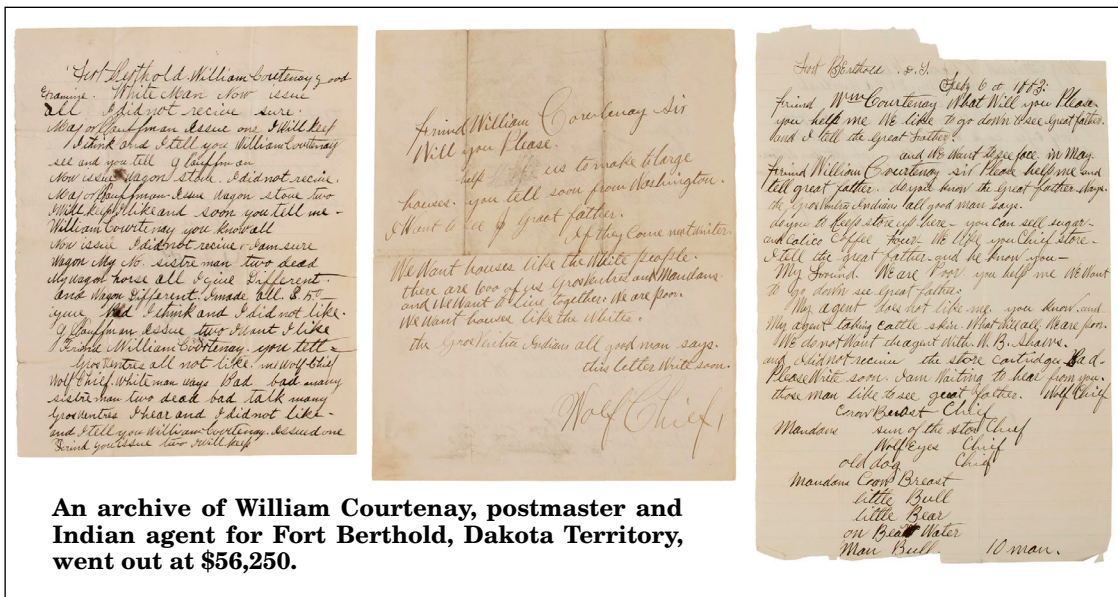 Fort Berthold. William Courtenay good
Examine. White Man Now issue
all I did not recive sure
Major Kauffman Issue one I Will keep
I think and I tell you William Courtenay
see and you tell g Cauffman
Now issue Wagon stove. I did not recive.
Major Kauffman Issue Wagon stove two
I Will keep I like and soon you tell me -
William Courtenay you know all
Now issue I did not recive & I am sure
Wagon My No. sistre man two dead
My Wagon horse all I give Different.
and Wagon Different. I made all
I think and I did not like.
g Kauffman Issue two I want I like
Friend William Courtenay. you tell -
Grosventres all not like. me Wolf Chief
Wolf Chief. White man says Bad bad many
sistre man two dead bad talk many
Grosventres I hear and I did not like -
and I tell you William Courtenay. Issued one
Frind you issue two I will keep
frind William Courtenay Sir
Will you Please.
help us to make large
houses. you tell soon from Washington.
I Want to see great father.
If they come next winter
We Want houses like the White people.
there are 600 of us Grosventres and Mandans
and We Want to live together. We are poor.
We Want houses like the Whites.
the Grosventres Indians all good man says.
this letter Write soon.
Wolf Chief
Fort Berthold D.T.
Feby 6 at 1883:
friend Wm Courtenay What Will you Please
you help me We like to go down to see Great father.
and I tell the Great Father
and We Want to see face in May.
friend William Courtenay sir Please help me and
tell great father. do you know the Great father says.
the Grosventres Indians all good man says.
do you to keep store up here - you can sell sugar-
and Calico Coffee We like you Chief store -
I tell the great father. and he know you -
My friund We are Poor you help me We Want
to go down see Great father.
My agent does not like me you know and
My agent taking cattle skin. What kill all We are poor.
We do not Want the agent with W. B. Shaws.
and I did not recive the store cartridges Bad.
Please Write soon. I am Waiting to hear from you.
those man like to see great father. Wolf Chief
Crow Breast Chief
Mandans sun of the star Chief
Wolf Eyes Chief
old dog Chief
Mandans Crow Breast
little Bull
little Bear
on Bear Water
Man Bull. 10 man.
An archive of William Courtenay, postmaster and
Indian agent for Fort Berthold, Dakota Territory,
went out at $56,250.